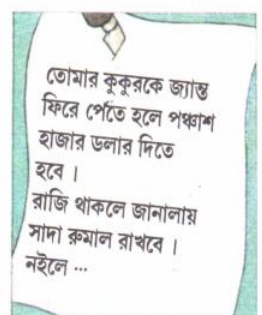 তোমার কুকুরকে জ্যান্ত
ফিরে পেতে হলে পঞ্চাশ
হাজার ডলার দিতে
হবে ।
রাজি থাকলে জানালায়
সাদা রুমাল রাখবে ।
নইলে ...